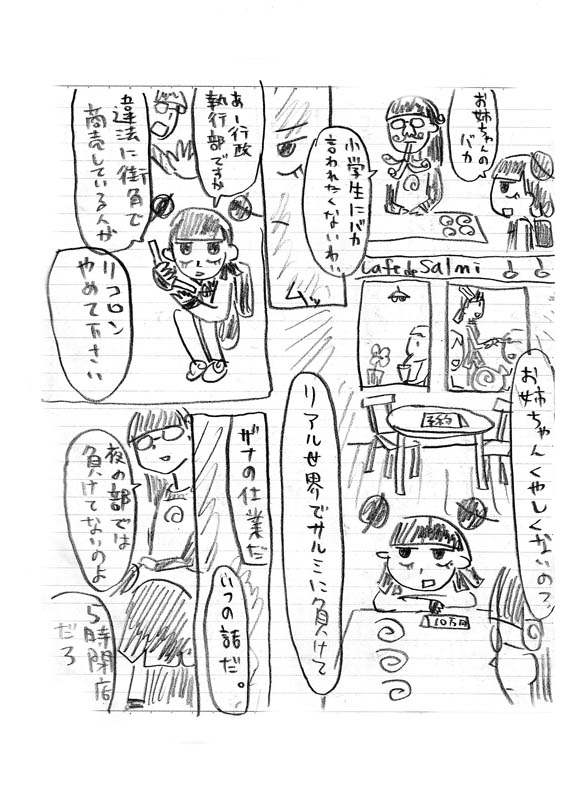 お姉ちゃんの
バカ
小学生にバカ
言われたくないわい
Cafe de Salmi
お姉ちゃんくやしくないの?
予約
リアル世界でサルミに負けて
10万円
ムッ
あー行政
執行部ですか
違法に街角で
商売している人が
リコロン
やめて下さい
ザナの仕業だ
いつの話だ。
夜の部では
負けてないのよ
5時閉店
だろ